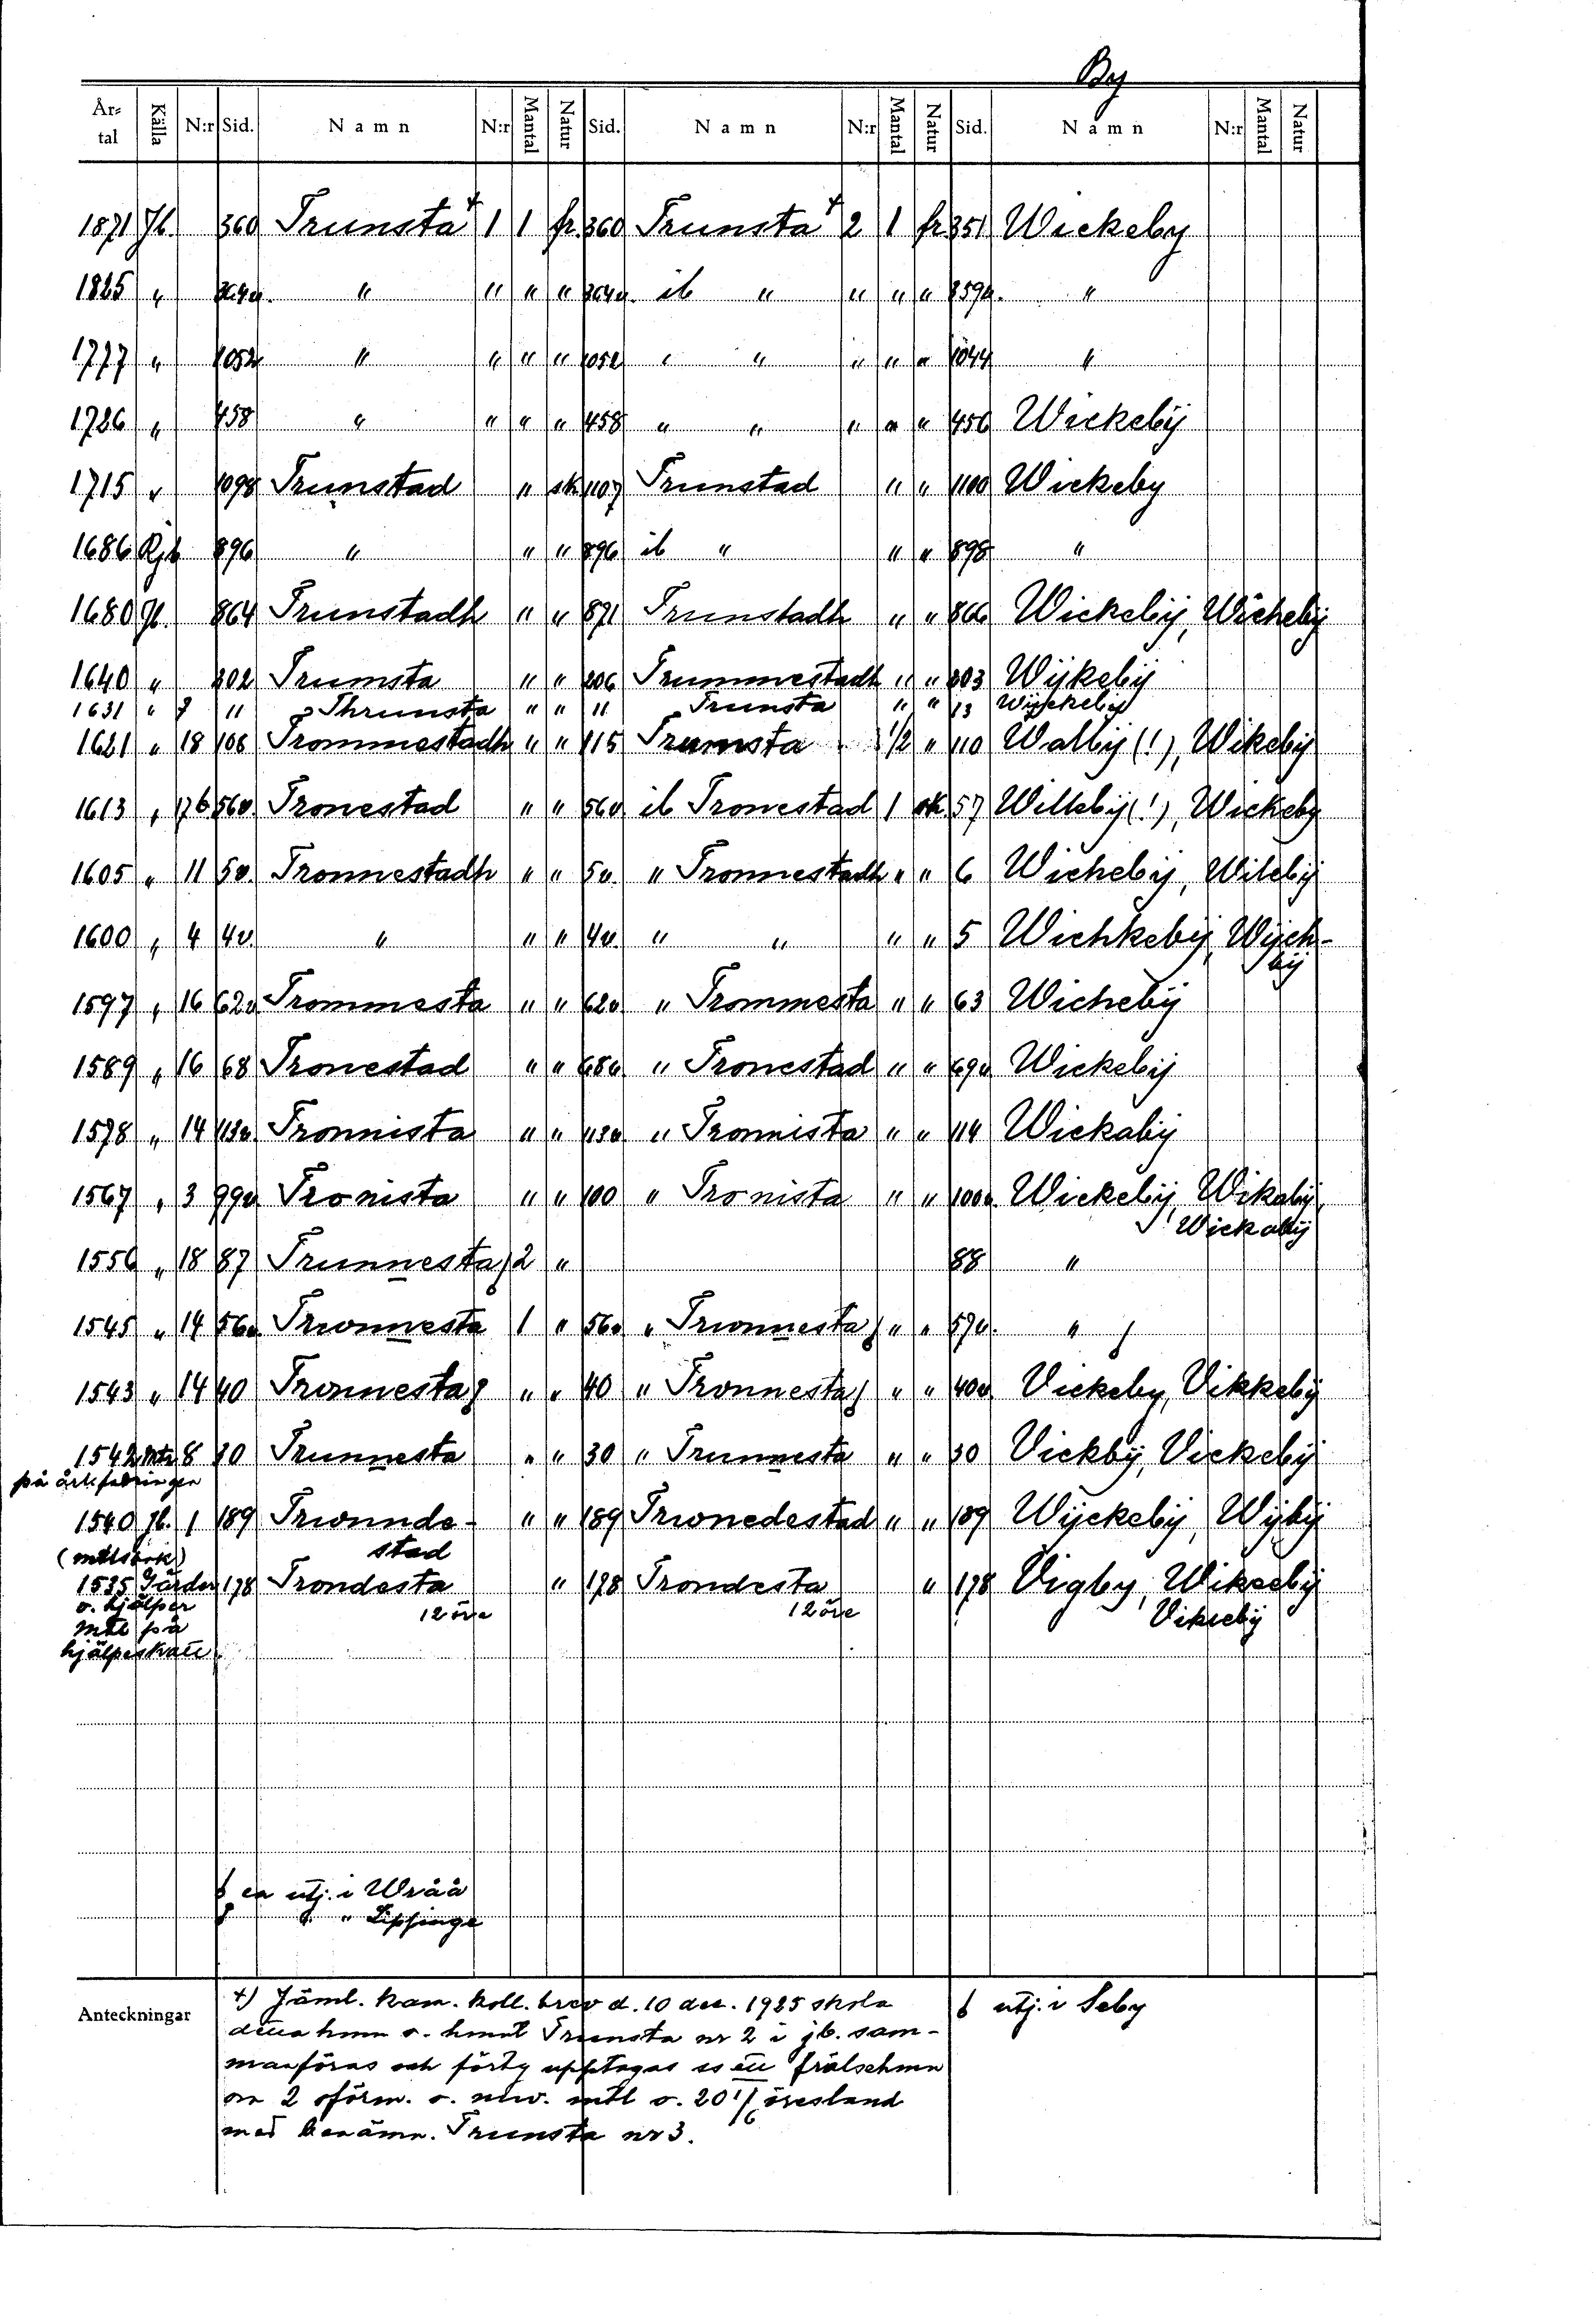 By
År-tal Källa N:r Sid. Namn N:r Mantal Natur Sid. Namn N:r Mantal Natur Sid. Namn N:r Mantal Natur
1871 Jb. 360 Trunsta + 1 1 fr. 360 Trunsta + 2 1 fr 351 Wickeby
1825 " 364v. " " " " 364v. ib " " " " 359v. "
1777 " 1052 " " " " 1052 " " " " " 1044 "
1726 " 458 " " " " 458 " " " " " 456 Wickebÿ
1715 " 1098 Trunstad " sk 1107 Trunstad " " 1100 Wickeby
1686 Rjb 896 " " " 896 ib " " " 898 "
1680 Jb. 864 Trunstadh " " 871 Trunstadh " " 866 Wickebÿ, Wichebÿ
1640 " 202 Trumsta " " 206 Trummestadh " " 203 Wijkebÿ
1631 " 7 11 Thrunsta " " 11 Trunsta " " 13 Wijkkebÿ
1621 " 18 108 Trommestadh " " 115 Trumsta 1/2 " 110 Walbÿ (!), Wikebÿ
1613 " 17b 56v. Tronestad " " 56v. ib Tronestad 1 sk 57 Willebÿ (!), Wickeby
1605 " 11 5v. Tronnestadh " " 5v. " Tronnestadh " " 6 Wichebÿ, Wikebÿ
1600 " 4 4v. " " " 4v. " " " " 5 Wichkebÿ, Wÿck-
bÿ
1597 " 16 62v Trommesta " " 62v " Trommesta " " 63 Wichebÿ
1589 " 16 68 Tronestad " " 68v. " Tronestad " " 69v Wickebÿ
1578 " 14 113v. Tronnista " " 113v " Tronnista " " 114 Wickabÿ
1567 " 3 99v. Tronista " " 100 " Tronista " " 100v. Wickebÿ, Wikabÿ,
Wickabÿ
1556 " 18 87 Trunnesta 2 " 88 "
1545 " 14 56v. Trwnnesta 1 " 56v " Trwnnesta " " 57v. "
1543 " 14 40 Tronnesta " " 40 " Tronnesta " " 40v. Vickeby, Vikkebÿ
1542 Mtr 8 30 Trunnesta " " 30 " Trunnesta " " 30 Vickbÿ, Vickebÿ
på
1540 Jb. 1 189 Trwnnde- " " 189 Trwnedestad " " 189 Wÿckebÿ, Wÿbÿ
(mtlsbok) stad
1535 Gärder 178 Trondesta " 178 Trondesta " 178 Vigby, Wikeebÿ
o. hjälper 12 öre 12 öre Vikeebÿ
mtl på
hjälpeskatt
en utj. i Wråå
" " Lippinge
Anteckningar
+) Jäml. kam. koll. brev d. 10 dec. 1925 skola
detta hmn o. hmnt Trunsta nr 2 i jb. sam-
manföras och förty upptagas ss ett frälsehmn
om 2 oförm. o. nuv. mtl o. 20 1/6 öresland
med benämn. Trunsta nr 3.
utj. i Seby